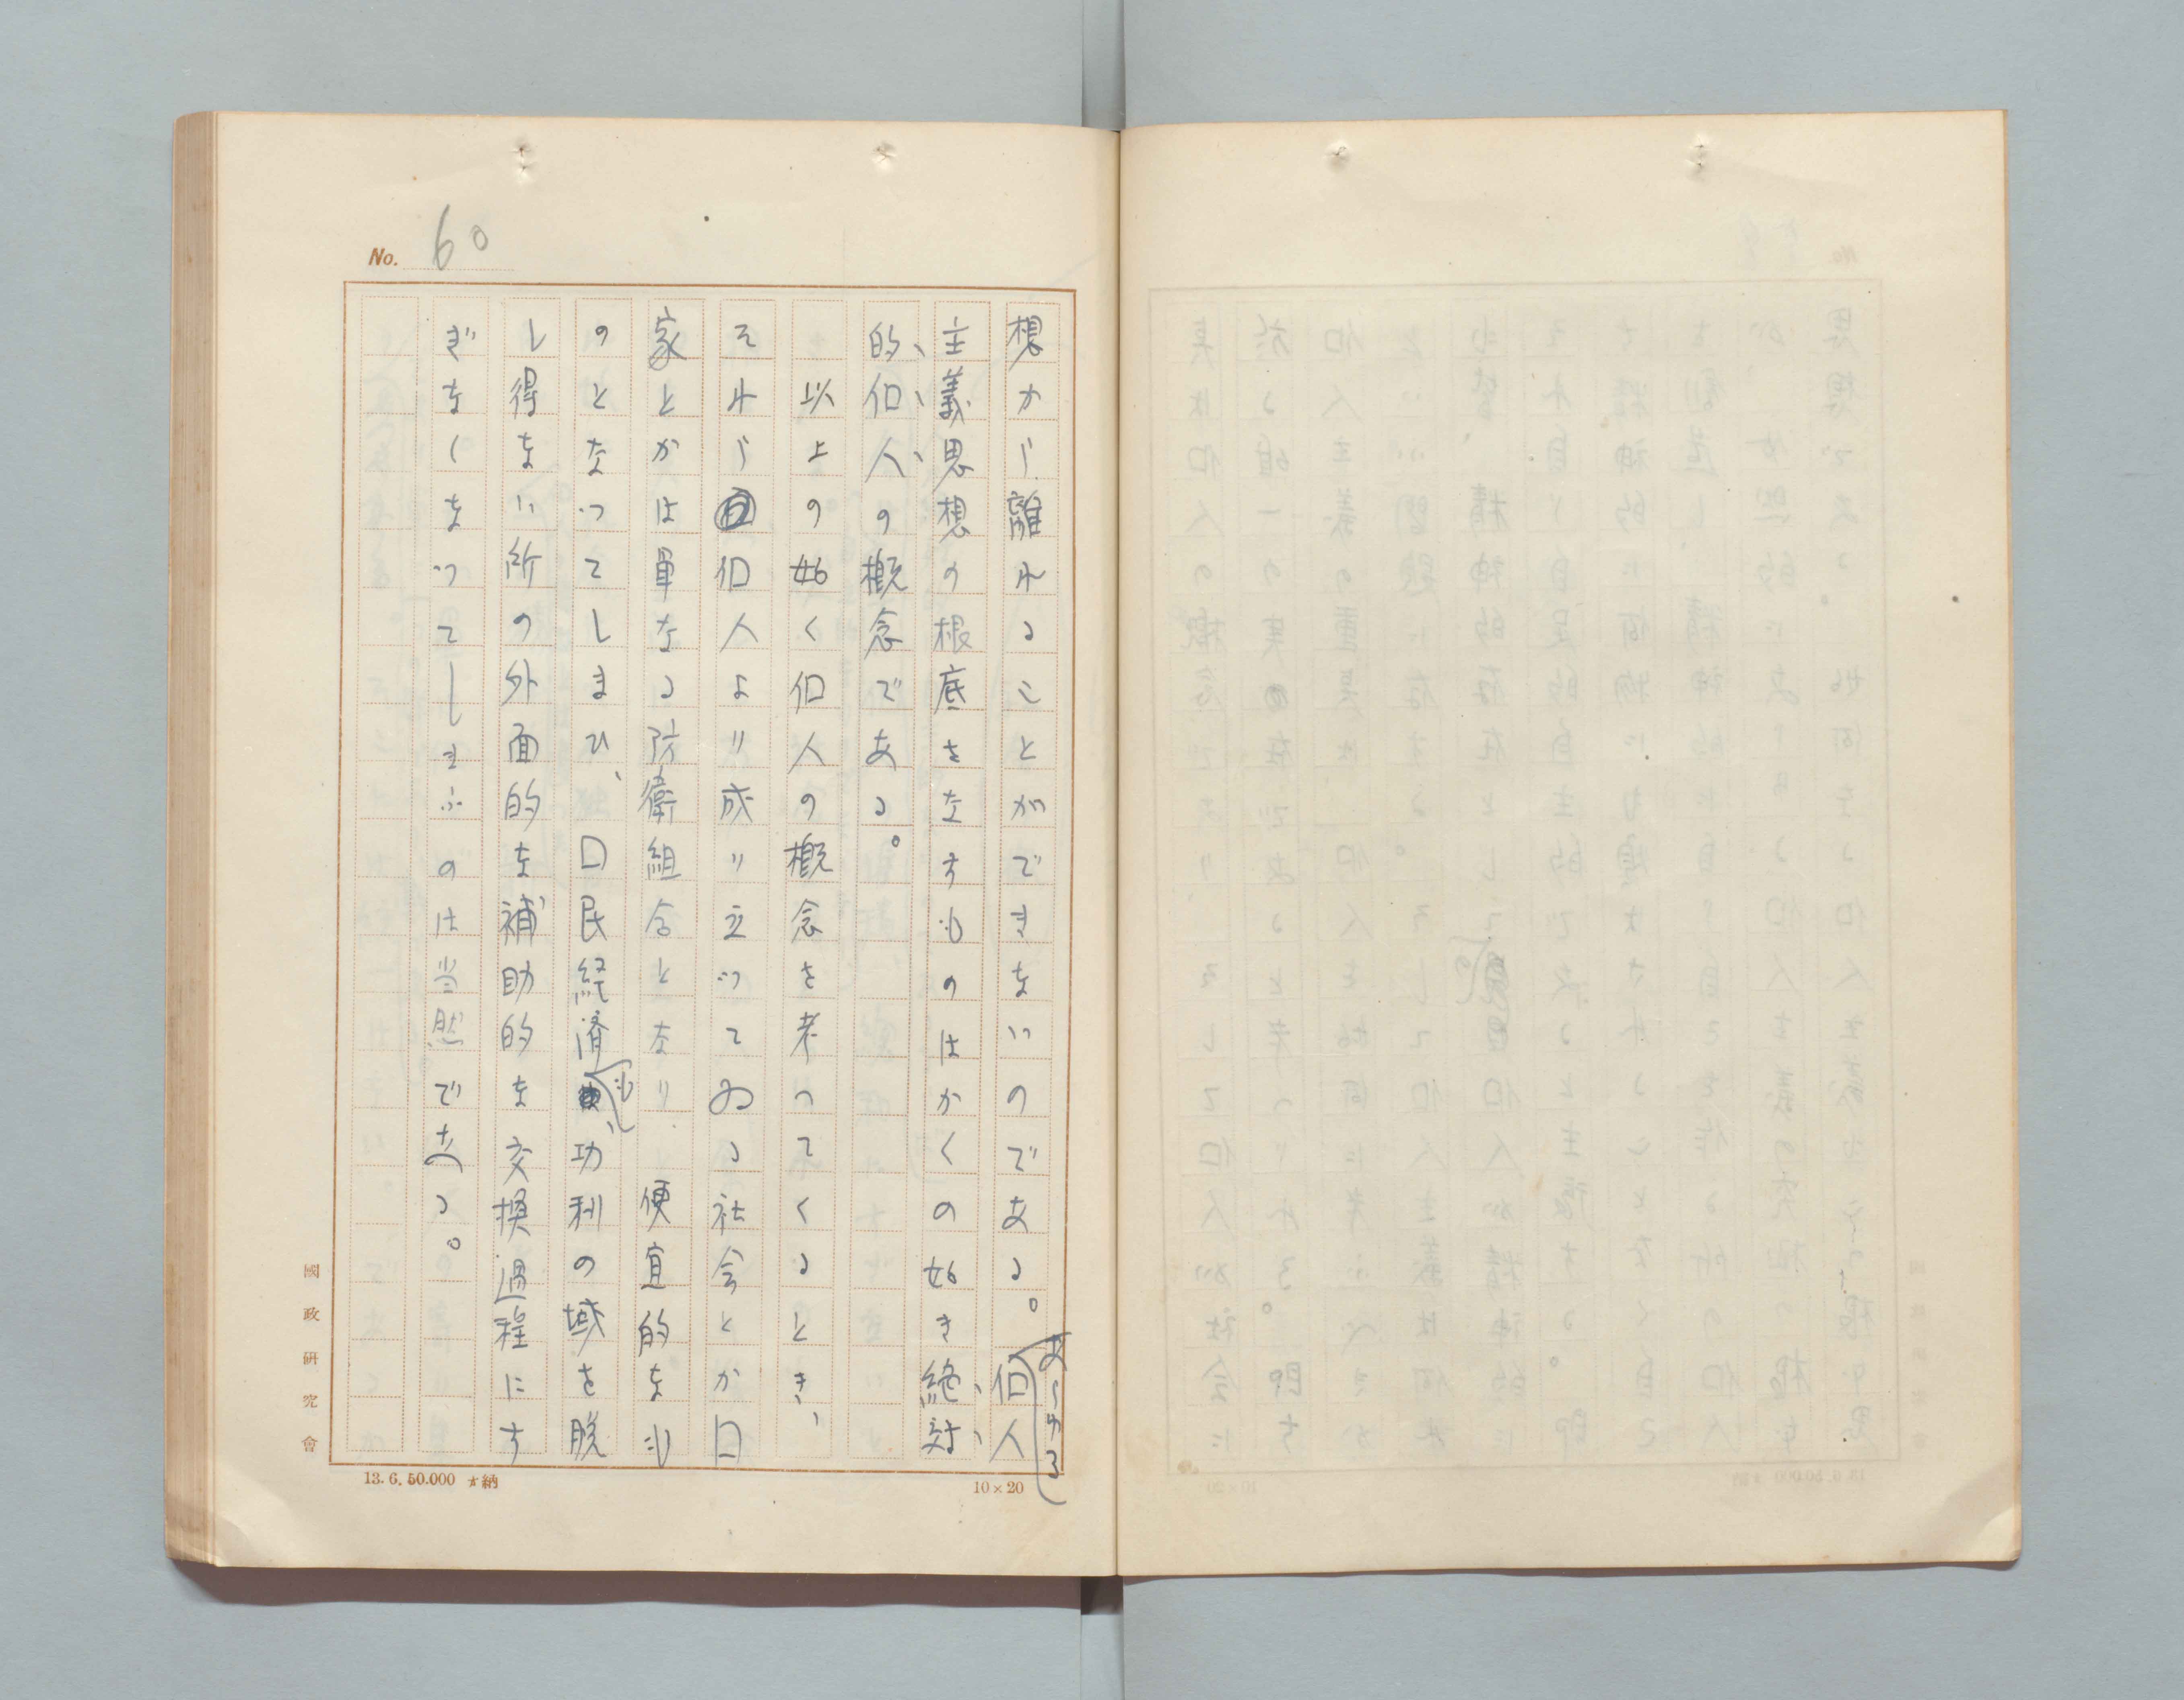 No. 60
想から離れることができないのである。あらゆる個人
主義思想の根底をなすものはかくの如き絶対
的個人の概念である。
以上の如く個人の概念を考つてくるとき、
それら個人より成り立つてゐる社会とか囗
家とかは単なる防衛組合となり便宜的なも
のとなつてしまひ、囗民経済も功利の域を脱
し得ない所の外面的な補助的な交換過程にす
ぎなくなつてしまふのは当然である。
國政研究會
13.6.50.000 才納
10×20